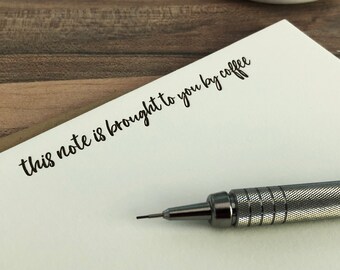 this note is brought to you by coffee